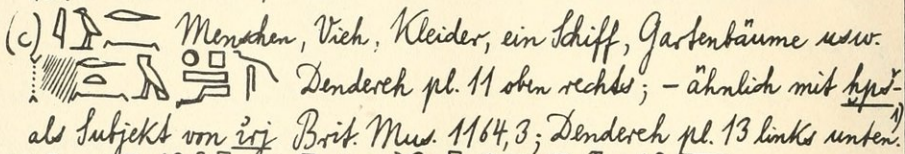 (c) Menschen, Vieh, Kleider, ein Schiff, Gartenbäume usw.
Dendereh pl. 11 oben rechts; – ähnlich mit ḫpš-
als Subjekt von ı͗rj Brit. Mus. 1164,3; Dendereh pl. 13 links unten. 1)